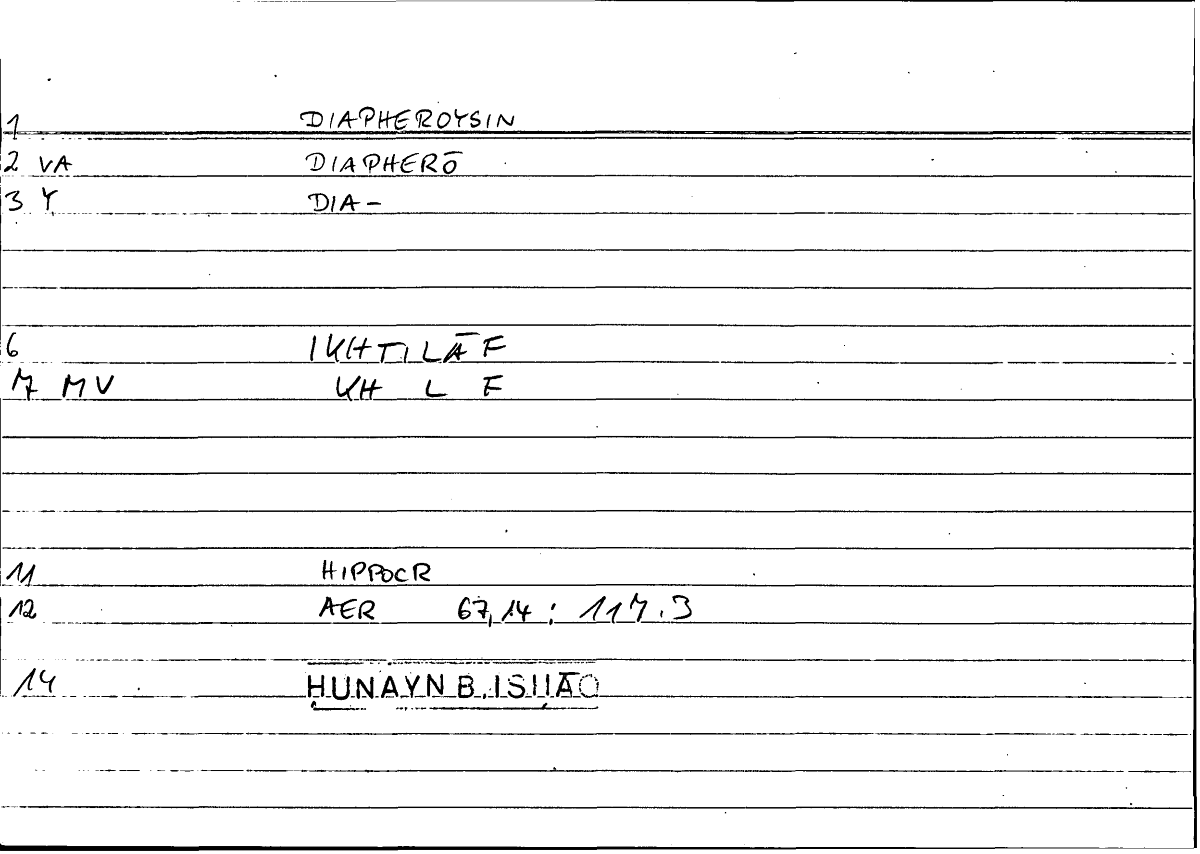 1 DIAPHEROYSIN
2 VA DIAPHERŌ
3 Y DIA-
6 IKHTILĀF
7 MV KH L F
11 HIPPOCR
12 AER 67,14 : 117.3
14 ḤUNAYN B. ISḤĀQ